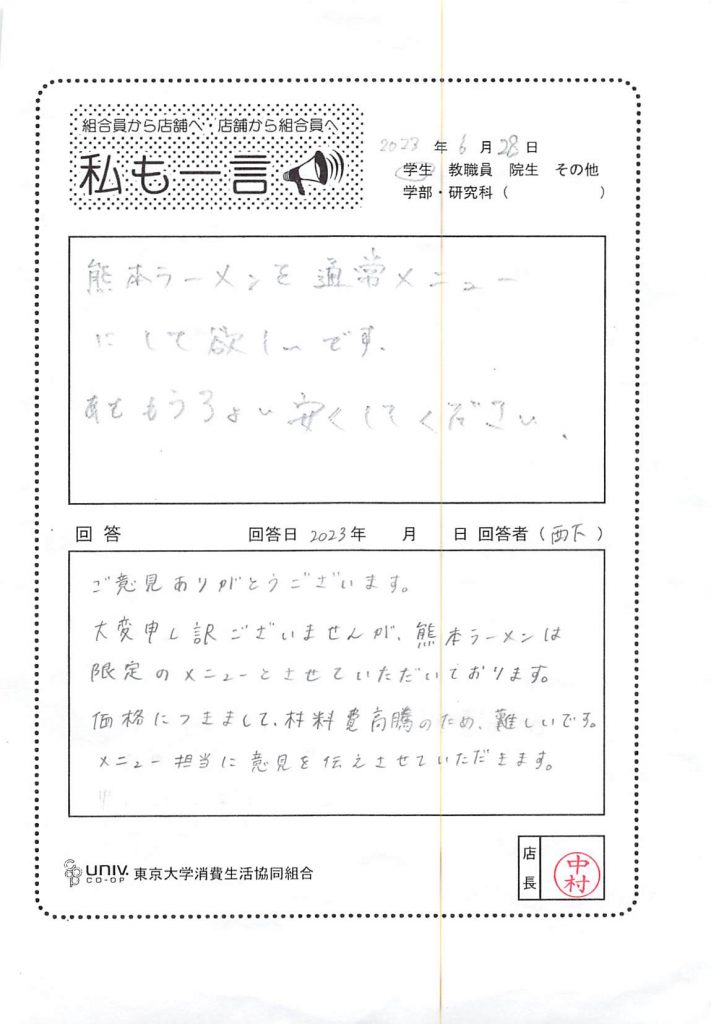 組合員から店舗へ・店舗から組合員へ
私も一言
2023 年 6 月 28 日
学生 教職員 院生 その他
学部・研究科（ ）
熊本ラーメンを通常メニュー
にして欲しいです。
あともうちょい安くしてください。
回答 回答日 2023年 月 日 回答者（西下）
ご意見ありがとうございます。
大変申し訳ございませんが、熊本ラーメンは
限定のメニューとさせていただいております。
価格につきまして、材料費高騰のため、難しいです。
メニュー担当に意見を伝えさせていただきます。
coop UNIV. CO-OP 東京大学消費生活協同組合
店長 中村